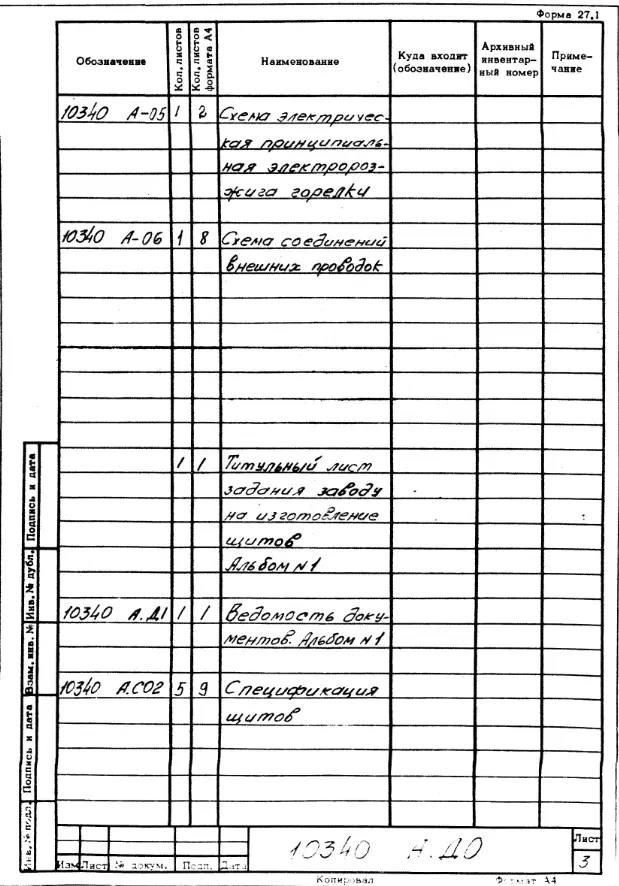 Форма 27.1
Обозначение
Кол. листов
Кол. листов формата А4
Наименование
Куда входит (обозначение)
Архивный инвентар-ный номер
Приме-чание
10340 А-05 1 2 Схема электричес-
кая принципиаль-
ная электророз-
жига горелки
10340 А-06 1 8 Схема соединений
внешних проводок
1 1 Титульный лист
задания заводу
на изготовление
щитов
Альбом N1
10340 А.Д1 1 1 Ведомость доку-
ментов. Альбом N1
10340 А.СО2 5 9 Спецификация
щитов
Подпись и дата
Инв. № дубл.
Взам. инв. №
Подпись и дата
Инв. № подл.
Изм Лист № докум. Подп. Дата
10340 А.ДО
Лист
3
Копировал
Формат А4